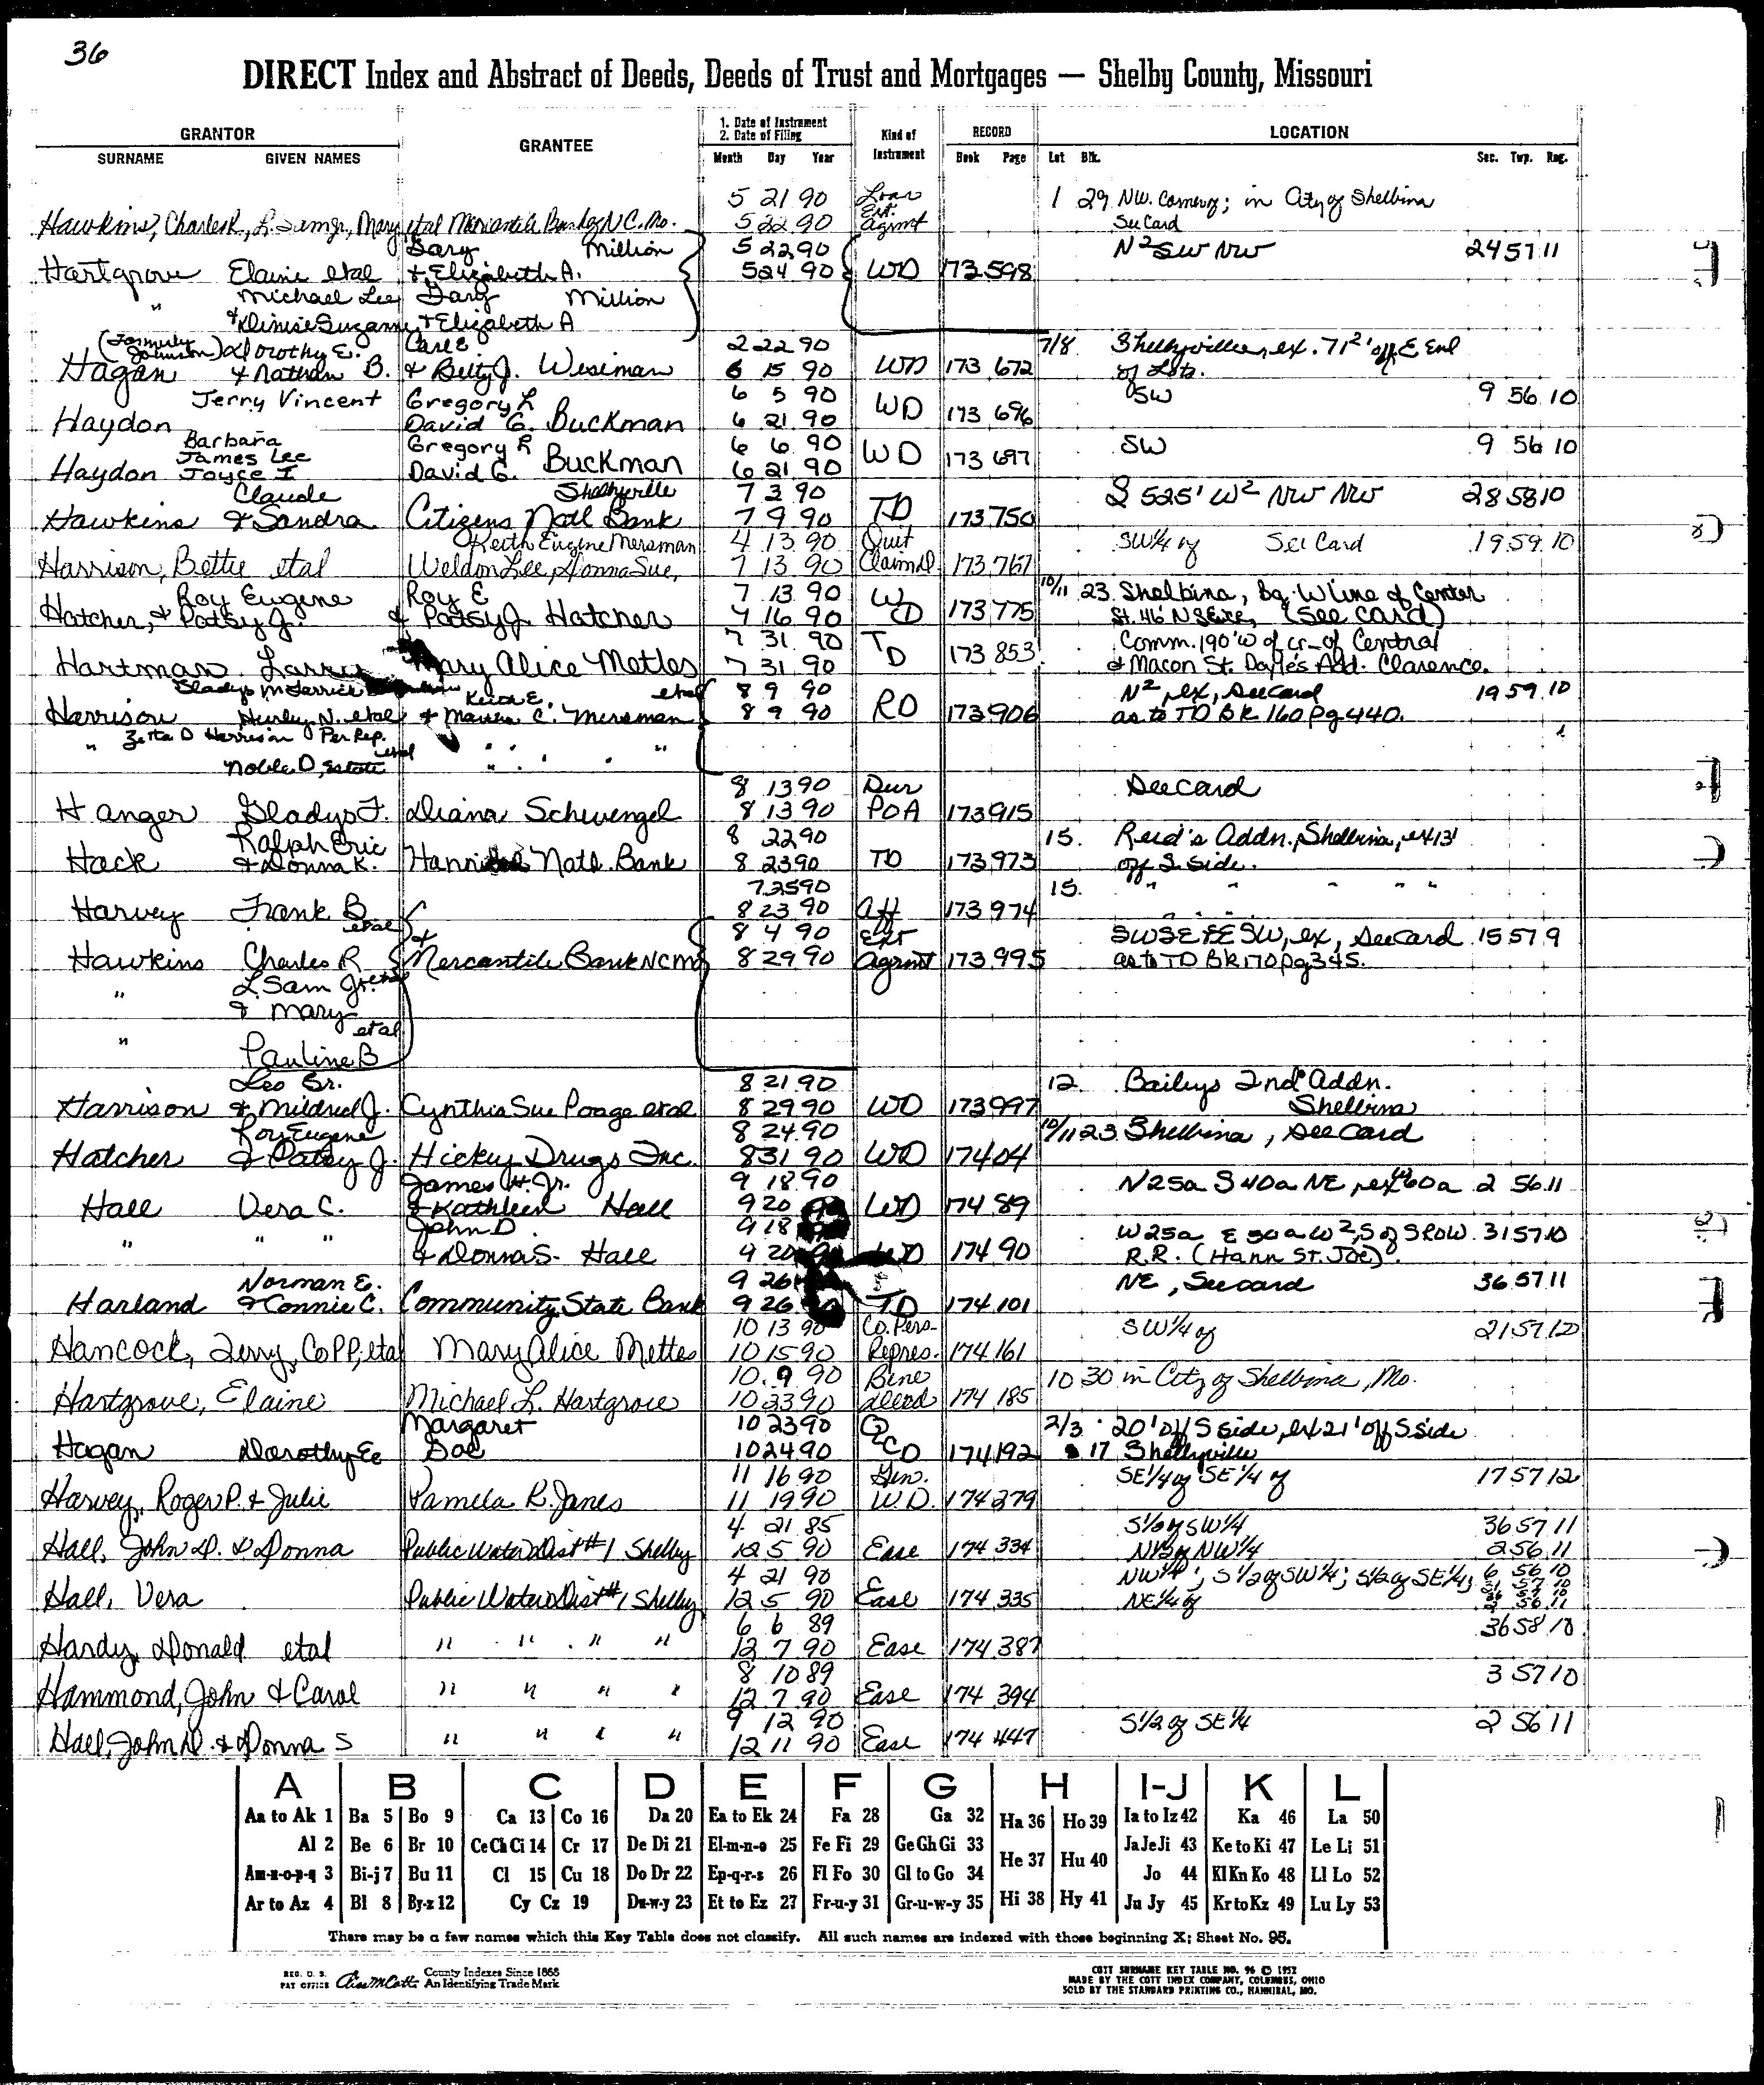 36
DIRECT Index and Abstract of Deeds, Deeds of Trust and Mortgages — Shelby County, Missouri
GRANTOR
SURNAME GIVEN NAMES
GRANTEE
1. Date of Instrument
2. Date of Filing
Month Day Year
Kind of
Instrument
RECORD
Book Page
LOCATION
Lot Blk. Sec. Twp. Rng.
5 21 90 Loan 1 29 NW. corner of; in City of Shelbina
Hawkins, Charles R., L. Sam Jr., Mary etal Mercantile Bank of N C. Mo. 5 22 90 Ext. Agrmt See Card
Gary Million 5 22 90 N2 SW NW 24 57 11
Hartgrove Elaine etal & Elizabeth A. 5 24 90 WD 173 598
" Michael Lee Gary Million
& Denise Suzanne & Elizabeth A
(Formerly Johnson) Dorothy E. Carl E 2 22 90 7/8 Shelbyville, ex. 71 2' off E End
Hagan & Nathan B. & Betty J. Wiseman 6 15 90 WD 173 672 of Lots.
Jerry Vincent Gregory L 6 5 90 SW 9 56 10
Haydon David G. Buckman 6 21 90 WD 173 696
Barbara
James Lee Gregory L 6 6 90 SW 9 56 10
Haydon Joyce I David G. Buckman 6 21 90 WD 173 697
Claude Shelbyville 7 3 90 S 525' W2 NW NW 28 58 10
Hawkins & Sandra Citizens Natl Bank 7 9 90 TD 173 750
Keith Eugene Mersman 4 13 90 Quit SW1/4 of See Card 19 59 10
Harrison, Bettie etal Weldon Lee, Donna Sue, 7 13 90 Claim D. 173 767
Roy Eugene Roy E 7 13 90 10/11 23 Shelbina, bg. W line of Center
Hatcher, & Patsy J. & Patsy J Hatcher 7 16 90 WD 173 775 St. 46' N (See Card)
7 31 90 Comm. 190' W of cr of Central
Hartman Larry Mary Alice Mettes 7 31 90 TD 173 853 & Macon St. Doyle's Add. Clarence.
Keith E. etal 8 9 90 N2, ex, See Card 19 59 10
Harrison Hurley N. etal & Martha C. Mersman 8 9 90 RD 173 906 as to TD Bk 160 pg 440.
" Zetta D Harrison Per Rep. " " "
Noble D, Estate etal " " "
8 13 90 Dur See Card
Hanger Gladys F. Diana Schwengel 8 13 90 POA 173 915
Ralph Eric 8 22 90 15. Reid's Addn., Shelbina, ex 13'
Hack & Donna K. Hannibal Natl. Bank 8 23 90 TD 173 973 off S side.
7 25 90 15. " " " " "
Harvey Frank B etal 8 23 90 Aff 173 974 " " "
8 4 90 Ext SW SE & E SW, ex, See Card 15 57 9
Hawkins Charles R & Mercantile Bank NC MO 8 29 90 Agrmt 173 995 as to TD Bk 170 pg 345.
" L. Sam Jr. etal
& Mary
" etal
Pauline B
Leo Sr. 8 21 90 12. Baileys 2nd Addn.
Harrison & Mildred J. Cynthia Sue Poage etal 8 29 90 WD 173 997 Shelbina
Roy Eugene 8 24 90 10/11 23 Shelbina, See Card
Hatcher & Patsy J. Hickey Drugs Inc. 8 31 90 WD 174 04
James H. Jr. 9 18 90 N25a S 40a NE, ex 60a 2 56 11
Hall Vera C. & Kathleen Hall 9 20 WD 174 89
John D. 9 18 W25a E 50a W2, S of S ROW 31 57 10
" " " & Donna S. Hall 9 20 90 WD 174 90 R.R. (Hann St. Joe).
Norman E. 9 26 NE, See card 36 57 11
Harland & Connie C. Community State Bank 9 26 TD 174 101
10 13 90 Co. Pers. SW1/4 of 21 57 12
Hancock, Terry, Co PP, etal Mary Alice Mettes 10 15 90 Repres. 174 161
10 9 90 Bene 10 30 in City of Shelbina, Mo.
Hartgrove, Elaine Michael L. Hartgrove 10 23 90 Deed 174 185
Margaret 10 23 90 2/3 20' off S side, ex 21' off S side
Hagan Dorothy E Doc 10 24 90 QCD 174 192 17 Shelbyville
11 16 90 Gen. SE1/4 of SE1/4 of 17 57 12
Harvey, Roger P. & Julie Pamela R. Janes 11 19 90 W.D. 174 279
4 21 85 S1/2 of SW1/4 36 57 11
Hall, John D. & Donna Public Water Dist #1 Shelby 12 5 90 Ease 174 334 N1/2 of NW1/4 2 56 11
4 21 90 NW1/4; S1/2 of SW1/4; S1/2 of SE1/4; 6 56 10
Hall, Vera Public Water Dist #1 Shelby 12 5 90 Ease 174 335 NE1/4 of 2 56 11
6 6 89 36 58 10
Hardy, Donald etal " " " " 12 7 90 Ease 174 387
8 10 89 3 57 10
Hammond, John & Carol " " " " 12 7 90 Ease 174 394
9 12 90 S1/2 of SE1/4 2 56 11
Hall, John D. & Donna S " " " " 12 11 90 Ease 174 447
A B C D E F G H I-J K L
Aa to Ak 1 Ba 5 Bo 9 Ca 13 Co 16 Da 20 Ea to Ek 24 Fa 28 Ga 32 Ha 36 Ho 39 Ia to Iz 42 Ka 46 La 50
Al 2 Be 6 Br 10 Ce Ch Ci 14 Cr 17 De Di 21 El-m-n-o 25 Fe Fi 29 Ge Gh Gi 33 He 37 Hu 40 Ja Je Ji 43 Ke to Ki 47 Le Li 51
Am-n-o-p-q 3 Bi-j 7 Bu 11 Cl 15 Cu 18 Do Dr 22 Ep-q-r-s 26 Fl Fo 30 Gl to Go 34 Jo 44 Kl Kn Ko 48 Ll Lo 52
Ar to Az 4 Bl 8 By-z 12 Cy Cz 19 Du-w-y 23 Et to Ez 27 Fr-u-y 31 Gr-u-w-y 35 Hi 38 Hy 41 Ju Jy 45 Kr to Kz 49 Lu Ly 53
There may be a few names which this Key Table does not classify. All such names are indexed with those beginning X; Sheet No. 95.
REG. U. S. PAT OFFICE County Indexes Since 1868
An Identifying Trade Mark
COTT SURNAME KEY TABLE NO. 96 © 1952
MADE BY THE COTT INDEX COMPANY, COLUMBUS, OHIO
SOLD BY THE STANDARD PRINTING CO., HANNIBAL, MO.